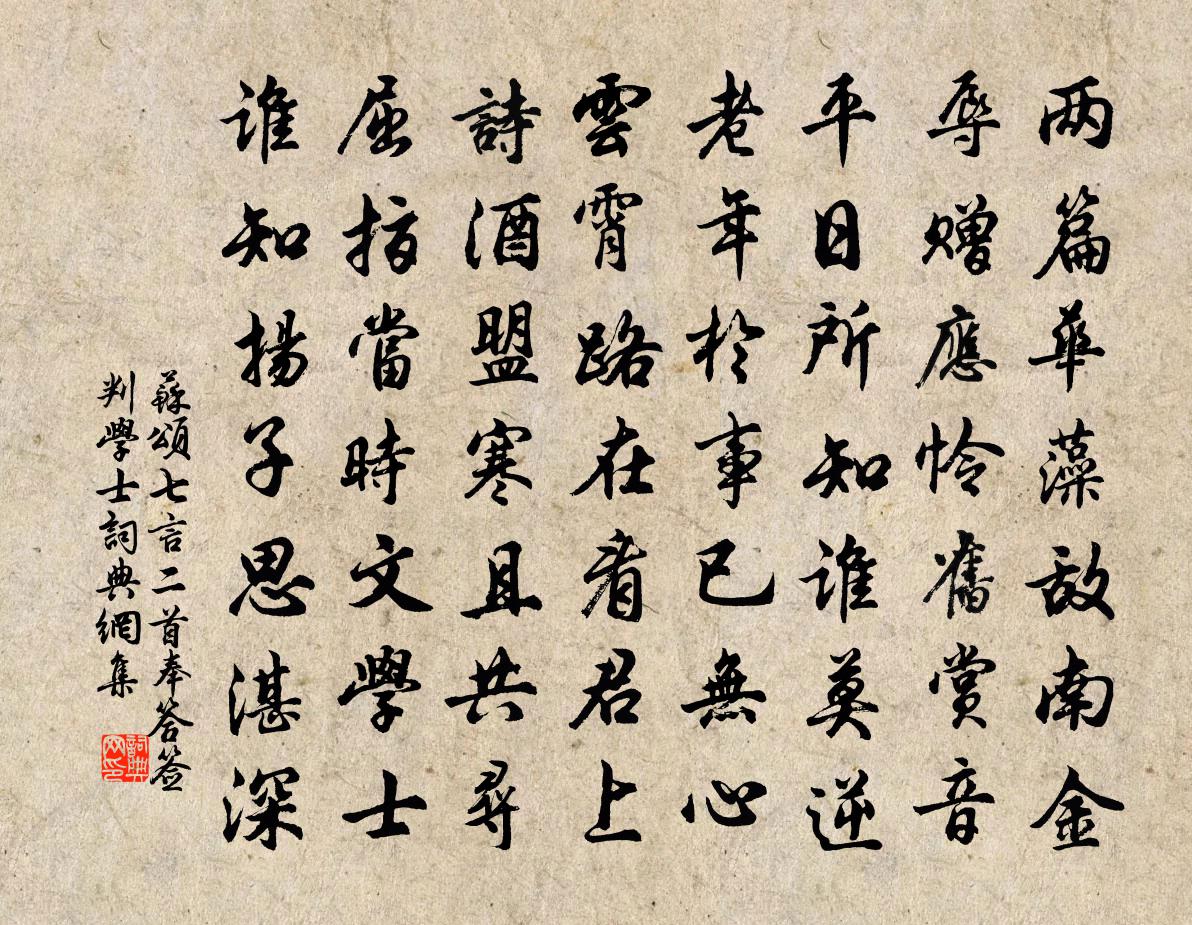 两篇華藻敌南金
辱赠應怜舊赏音
平日所知谁莫逆
老年於事已無心
雲霄路在看君上
詩酒盟寒且共尋
屈指當時文學士
谁知揚子思湛深
蘇頌七言二首奉答签
判學士詞典網集
詞典网印